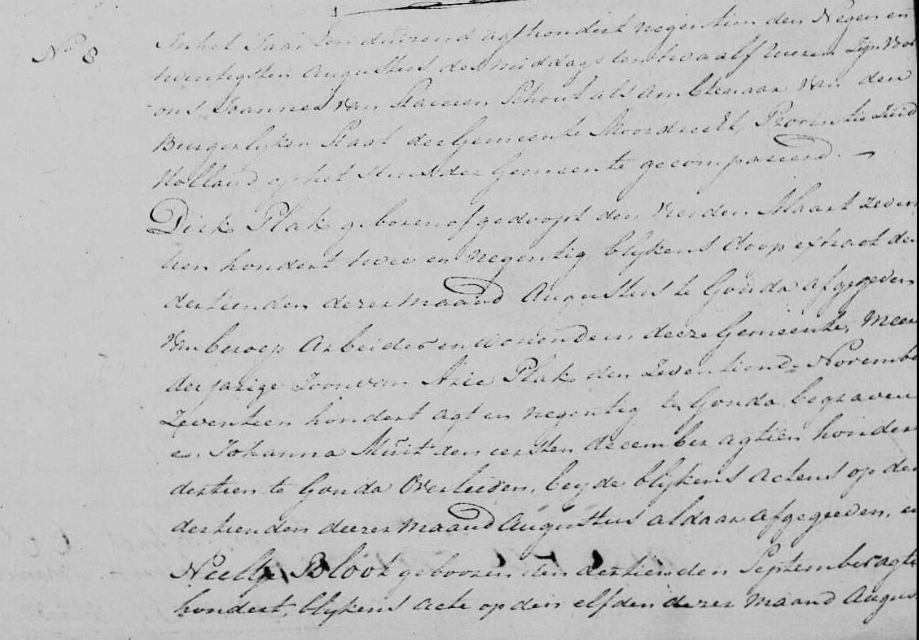 No 8
In het Jaar Een duizend agt hondert negentien den Negen en
twintigsten Augustus des middags ten twaalf uuren Zijn Voor
ons Joannes van Staveren Schout als Ambtenaar van den
Burgerlyken Staat der Gemeente Moordrecht, Provintie Zuid
Holland op het Huis der Gemeente gecompareerd. —
Dirk Plak geboren of gedoopt den vierden Maart Zeven
tien hondert twee en negentig blykens doop extract den
dertienden dezer maand Augustus te Gouda afgegeven
Van beroep Arbeider en wonende in deeze Gemeente, Meer
derjarige Zoon van Arie Plak den Zeventiende November
Zeventien hondert agt en negentig te Gouda begraven
en Johanna Muit den eersten december agtien hondert
dertien te Gouda Overleiden, beyde blykens actens op den
dertienden deezer maand Augustus aldaar afgegeeven, en
Neeltje Blook geboozen den dertienden September agtien
hondert, blykens Acte op den elfden dezer maand Augus